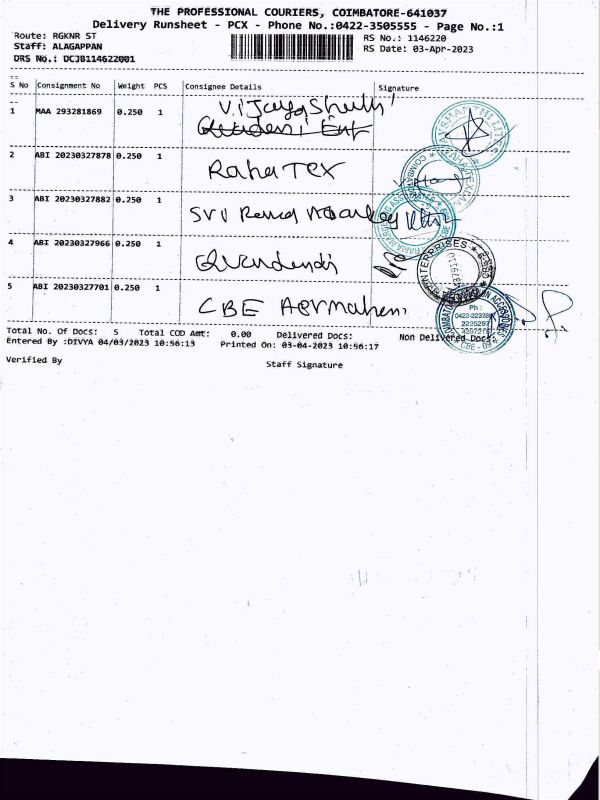 THE PROFESSIONAL COURIERS, COIMBATORE-641037
Delivery Runsheet - PCX - Phone No.:0422-3505555 - Page No.:1
Route: RGKNR ST RS No.: 1146220
Staff: ALAGAPPAN RS Date: 03-Apr-2023
DRS No.: DCJB114622001
S No Consignment No Weight PCS Consignee Details Signature
1 MAA 293281869 0.250 1
2 ABI 20230327878 0.250 1 Raha Tex
3 ABI 20230327882 0.250 1 Sri Rama
4 ABI 20230327966 0.250 1
ENTERPRISES
5 ABI 20230327701 0.250 1 CBE
0422-22328
Total No. Of Docs: 5 Total COD Amt: 0.00 Delivered Docs: Non Delivered Docs:
Entered By :DIVYA 04/03/2023 10:56:13 Printed On: 03-04-2023 10:56:17
Verified By Staff Signature